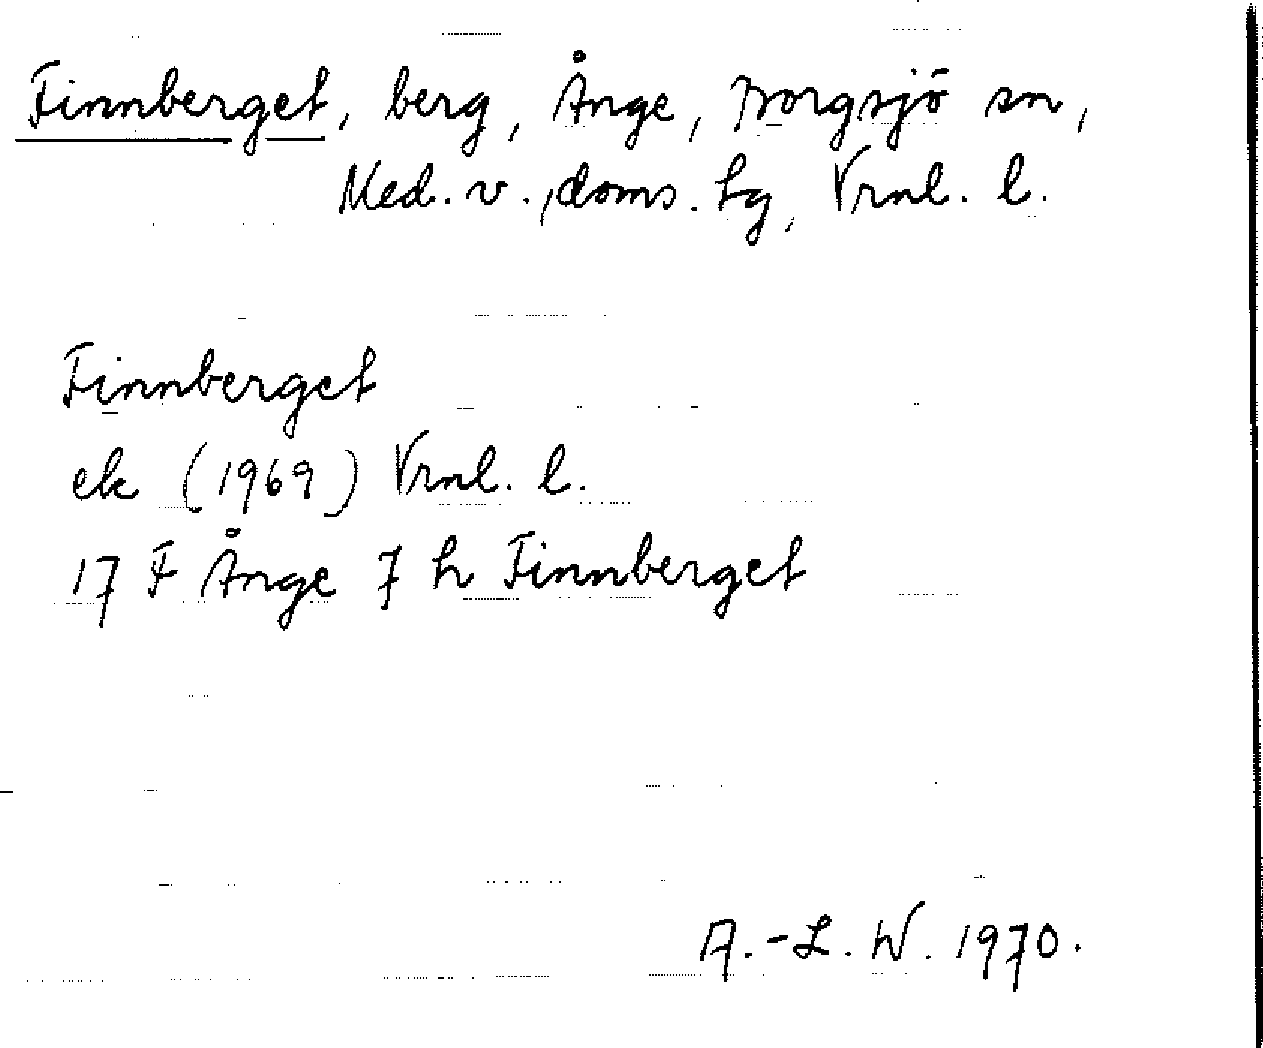 Finnberget, berg, Ånge, Borgsjö sn,
Med. v., doms. tg, Vrnl. l.
Finnberget
ek (1969) Vrnl. l.
17 F Ånge 7 h Finnberget
A.-L. W. 1970.